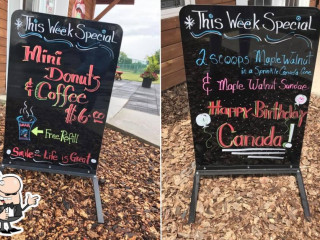 This Week Special
Mini
Donuts
& Coffee
$6.00
Free Refill
Smile Life is Great!
This Week Special
2 scoops Maple walnut
in a Sprinkle Canada Cone
& Maple Walnut Sundae
Happy Birthday
Canada!